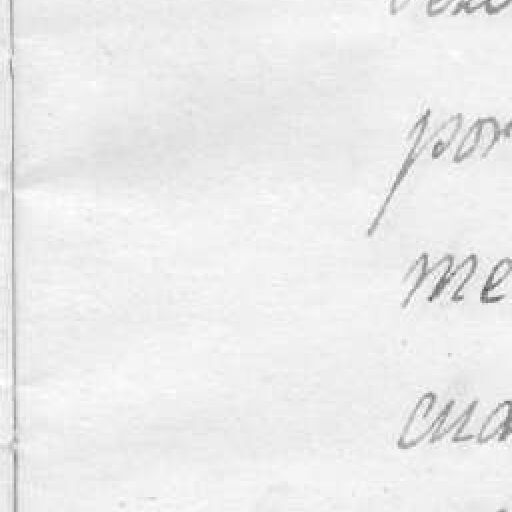 por
me
cua